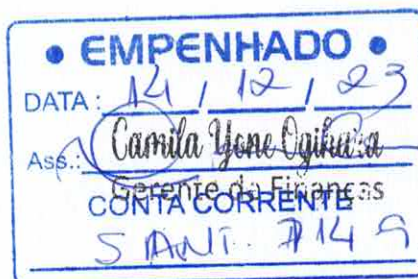 • EMPENHADO •
DATA: 14 / 12 / 23
Ass.: Camila Yone Ogihara
Gerente de Finanças
CONTA CORRENTE
SANT. 7149